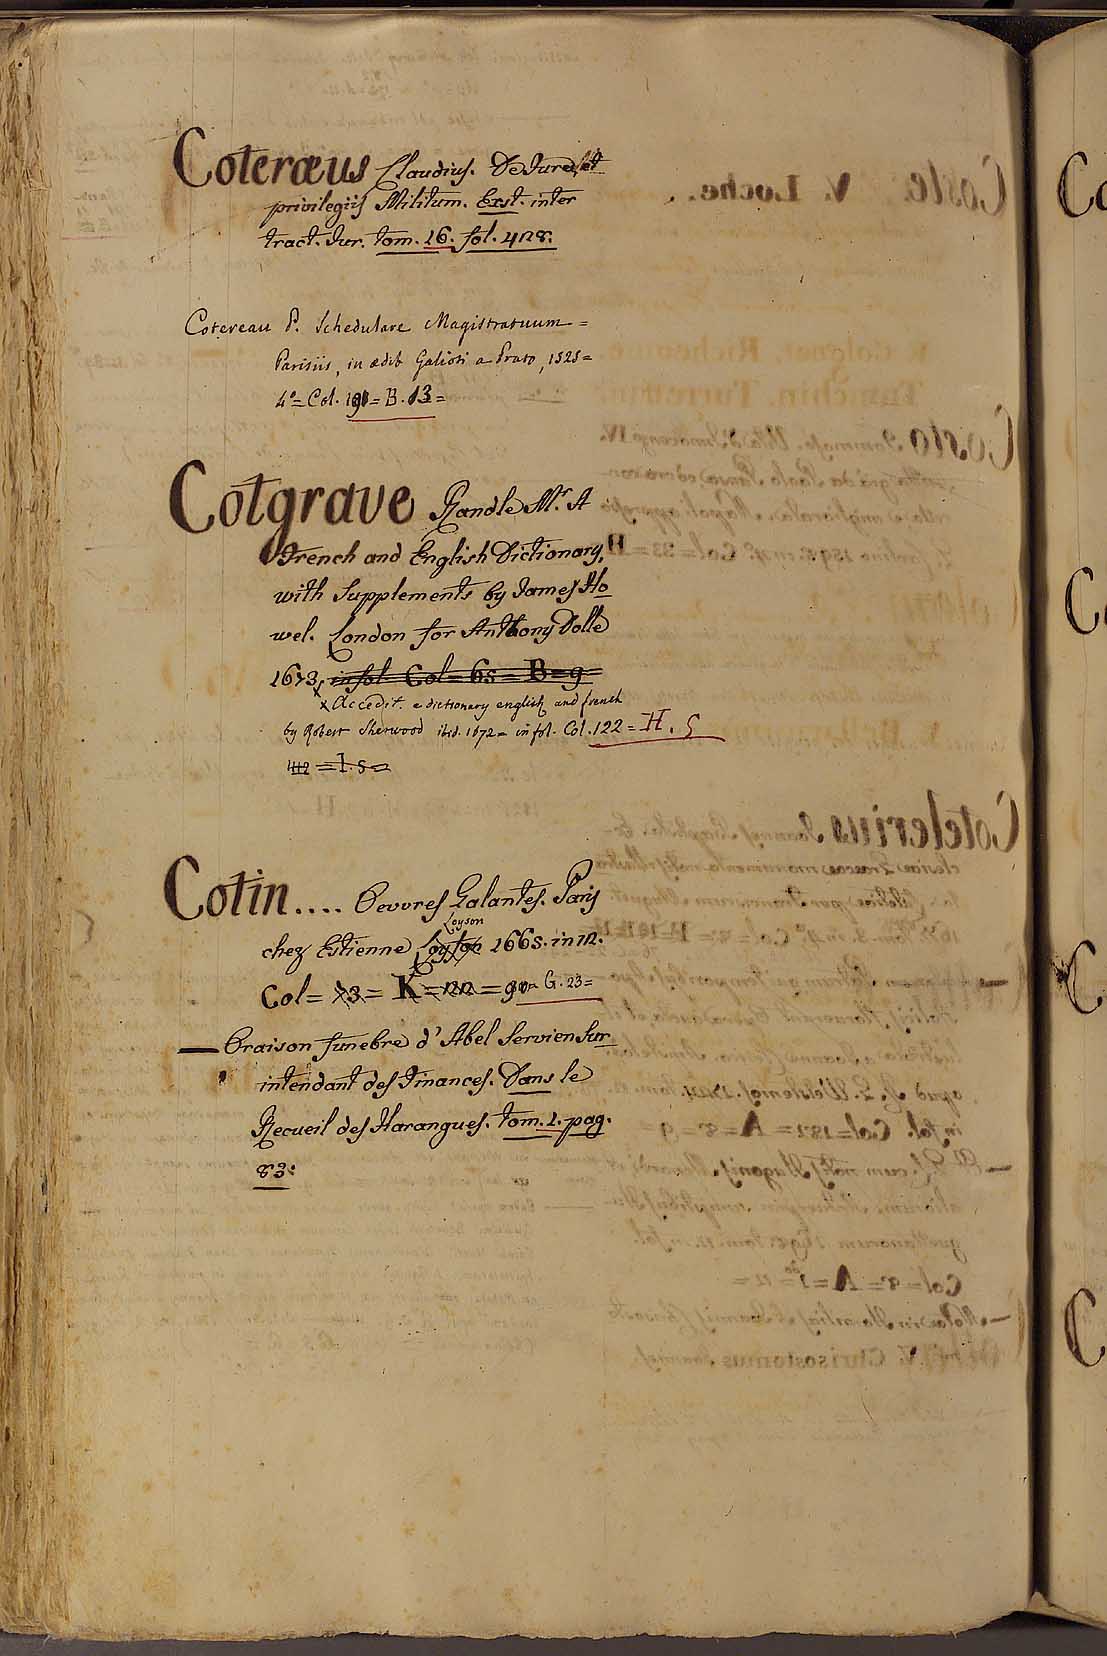 Coteræus Claudius. De Jure, et
privilegiis Militum. Exst. inter
tract. Jur. tom. 16. fol. 428.
Cotereau P. Schedulare Magistratuum =
Parisiis, in ædib Galioti a Prato, 1525 =
4º = Col. = B. 13 =
Cotgrave Randle Mr. A
French and English Dictionary,
with Supplements by James Ho
wel. London for Anthony Dolle
1673, in fol Col = 65 = B = 9
x Accedit. a dictionary english and french
by Robert Sherwood ibid. 1672 = in fol. Col. 122 = H. 5
112 = I. 5 =
Cotin.... Oevvres Galantes. Paris
Loyson
chez Estienne 1665. in 12.
Col = 73 = K = = G. 23 =
— Oraison funebre d' Abel Servien Sur
intendant des Finances. Dans le
Recueil des Harangues. tom. 1. pag.
83: